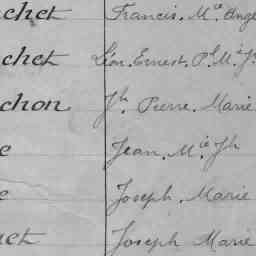 chet Francis. M.ie Ange
chet Léon. Ernest. P.l M.ie J.
chon J.h Pierre. Marie
e Jean. M.ie J.h
e Joseph. Marie
uet Joseph Marie